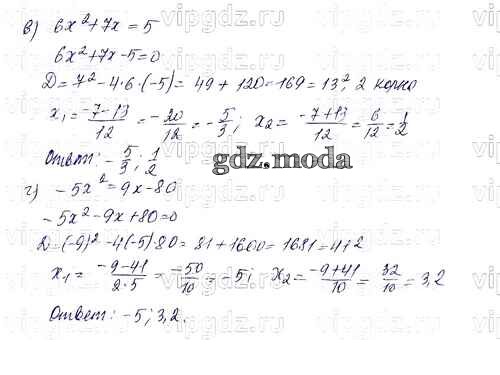 в) 6x² + 7x = 5
6x² + 7x - 5 = 0
D = 7² - 4·6·(-5) = 49 + 120 = 169 = 13², 2 корня
x₁ = (-7-13)/12 = -20/12 = -5/3; x₂ = (-7+13)/12 = 6/12 = 1/2
Ответ: -5/3; 1/2
gdz.moda
г) -5x² = 9x - 80
-5x² - 9x + 80 = 0
D = (-9)² - 4(-5)·80 = 81 + 1600 = 1681 = 41²
x₁ = (-9-41)/(2·5) = -50/10 = -5; x₂ = (-9+41)/10 = 32/10 = 3,2
Ответ: -5; 3,2.
vipgdz.ru